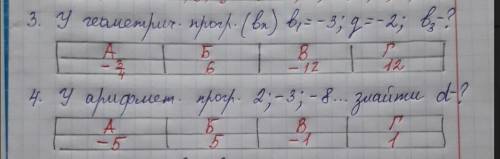 3. У геометрич. прогр. (bn) b₁=-3; q=-2; b₃-?
А Б В Г
-3/4 6 -12 12
4. У арифмет. прогр. 2; -3; -8... знайти d-?
А Б В Г
-5 5 -1 1